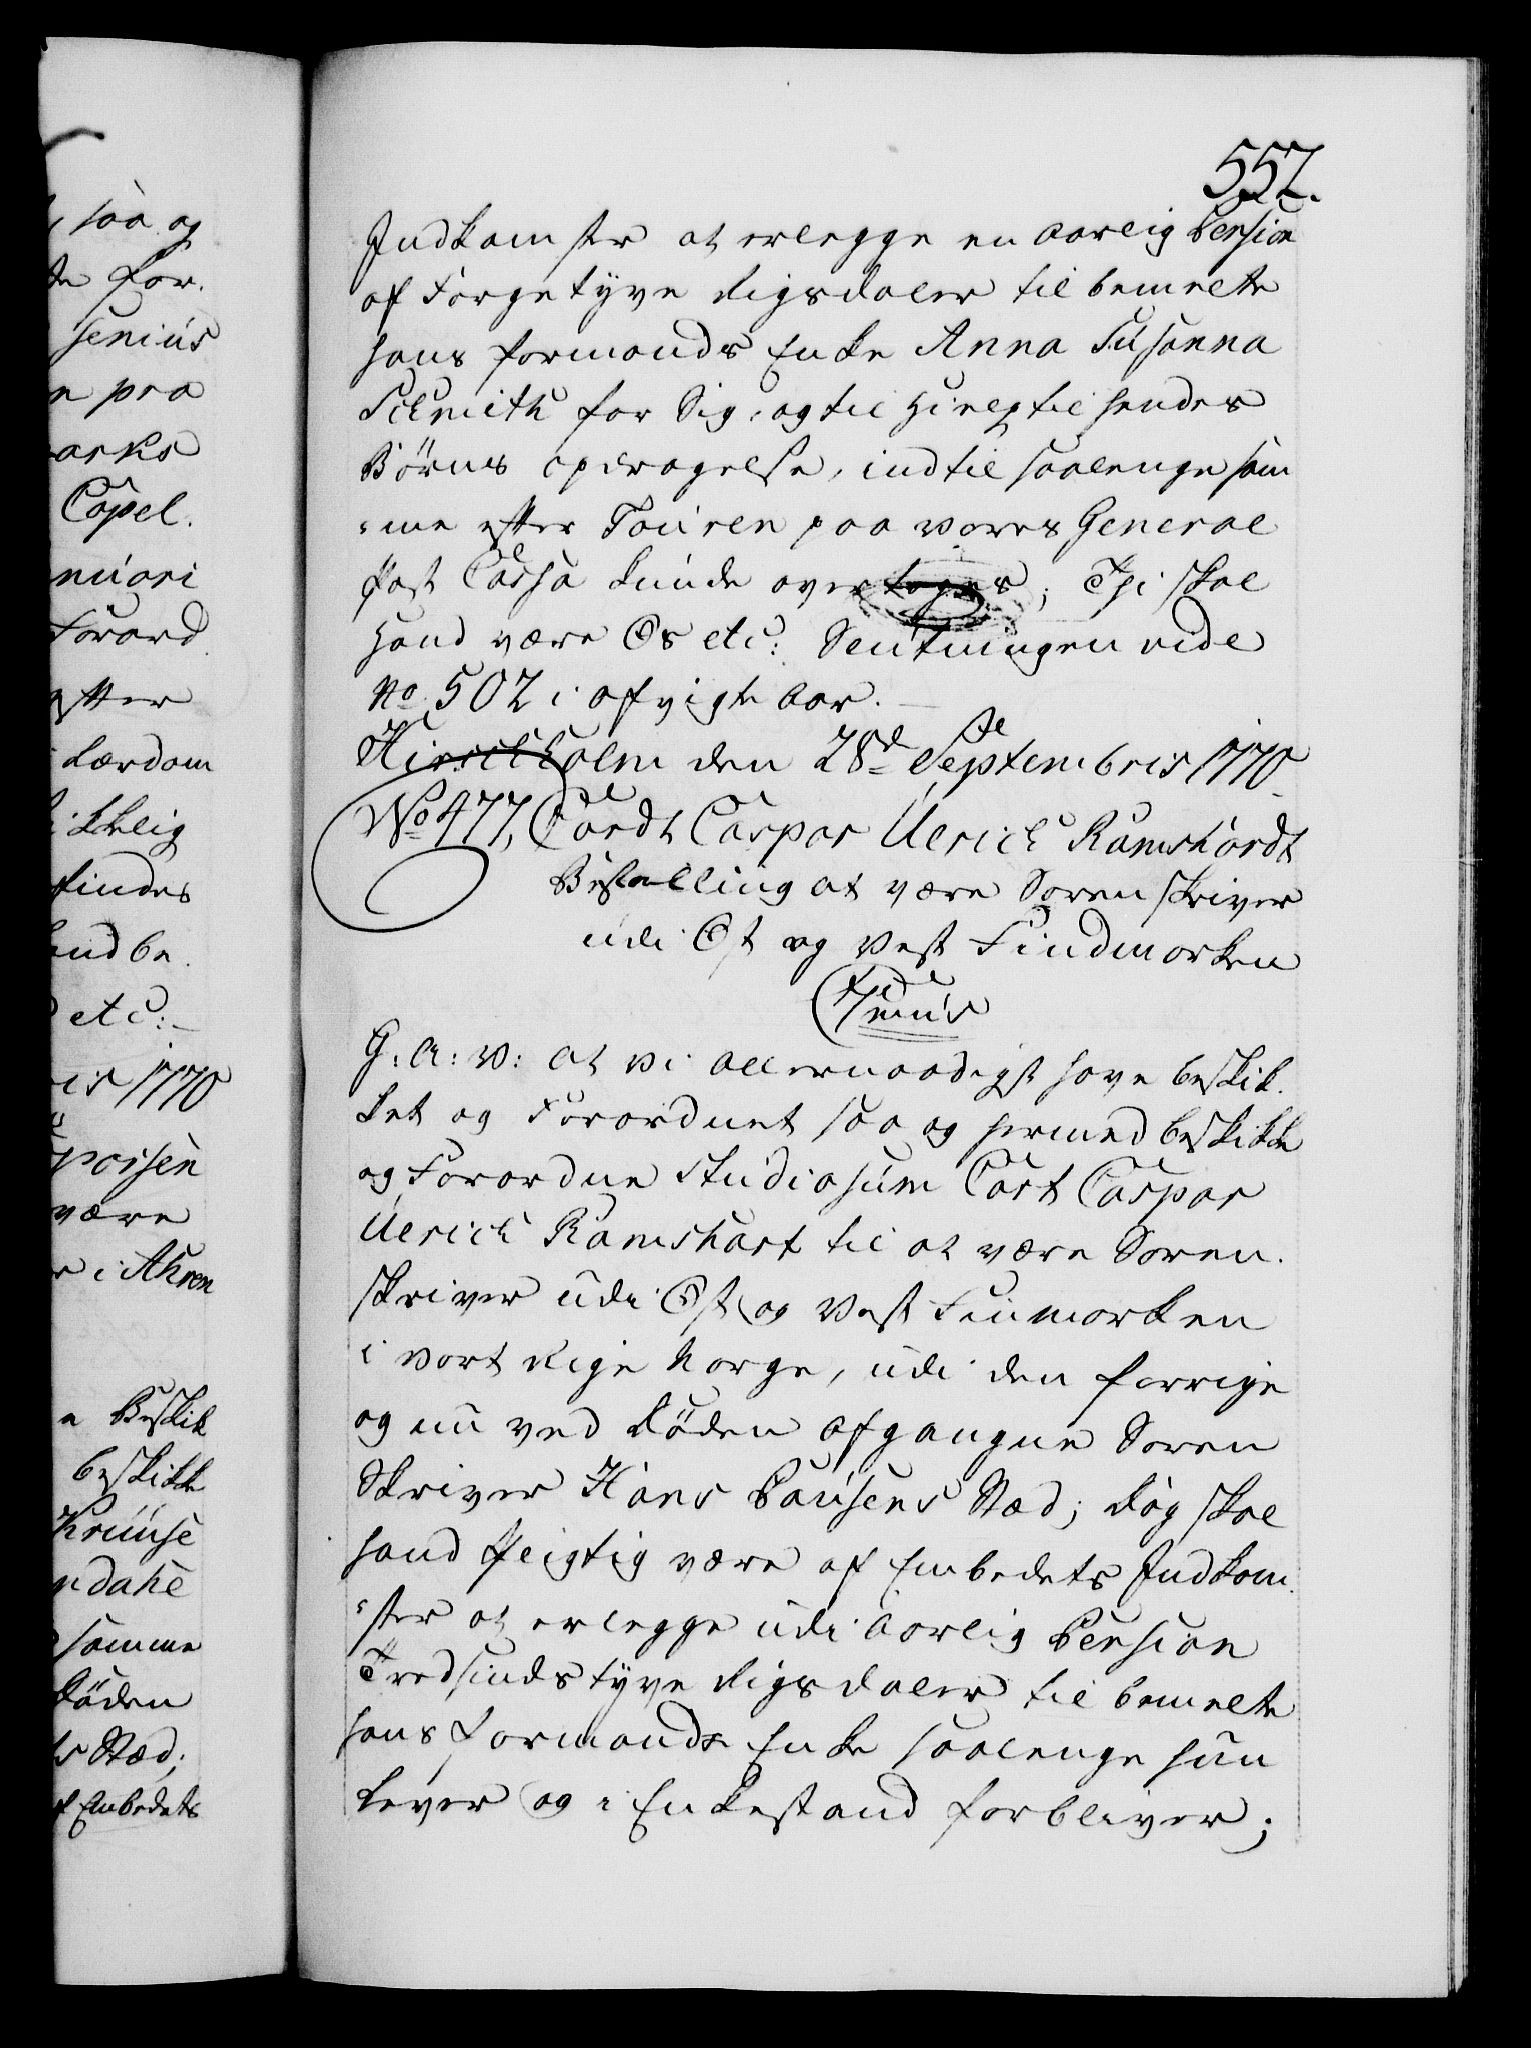 557.
Indkomster at erlegge en aarlig Pension
af Førgetyve Rigsdaler til bemelte
hans formands Enke Anna Susanna
Schmith for Sig, og til Hielp til hendes
Børns opdragelse, indtil saalenge sam
-me efter Touren paa vores General
Post Cassa kunde overtages; Thi skal
Hand være Os etc: Slutningen vide
No. 502 i afvigte Aar.
Hirschholm den 28de Septembris 1770
No 477, Cordt Caspar Ulrich Ramshardt
Bestalling at være Sorenskriver
udi Øst og Vest Findmarken
G: A: V: at Vi allernaadigst have beskik-
ket og Forordnet saa og hermed beskikke
og Forordne Studiosum Cort Caspar
Ulrich Ramshart til at være Soren-
skriver udi Øst og Vest Finmarken
i vort Rige Norge, udi den forrige
og nu ved Døden afgangne Soren
Skriver Hans Pausens Stæd; dog skal
hand pligtig være af Embedets Indkom-
-ster at erlegge udi aarlig Pension
Tredsindstyve Rigsdaler til bemelte
hans formands Enke saalenge hun
Lever og i Enkestand forbliver;
saa og
for-
senius
n pro
arks
Capel.
nuari
Forord
efter
Lærdom
findes
etc:
is 1770
være
r i Ahren
e Beskik
beskikke
Kruuse
ndahl
samme
Døden
s Stæd;
f Embedets